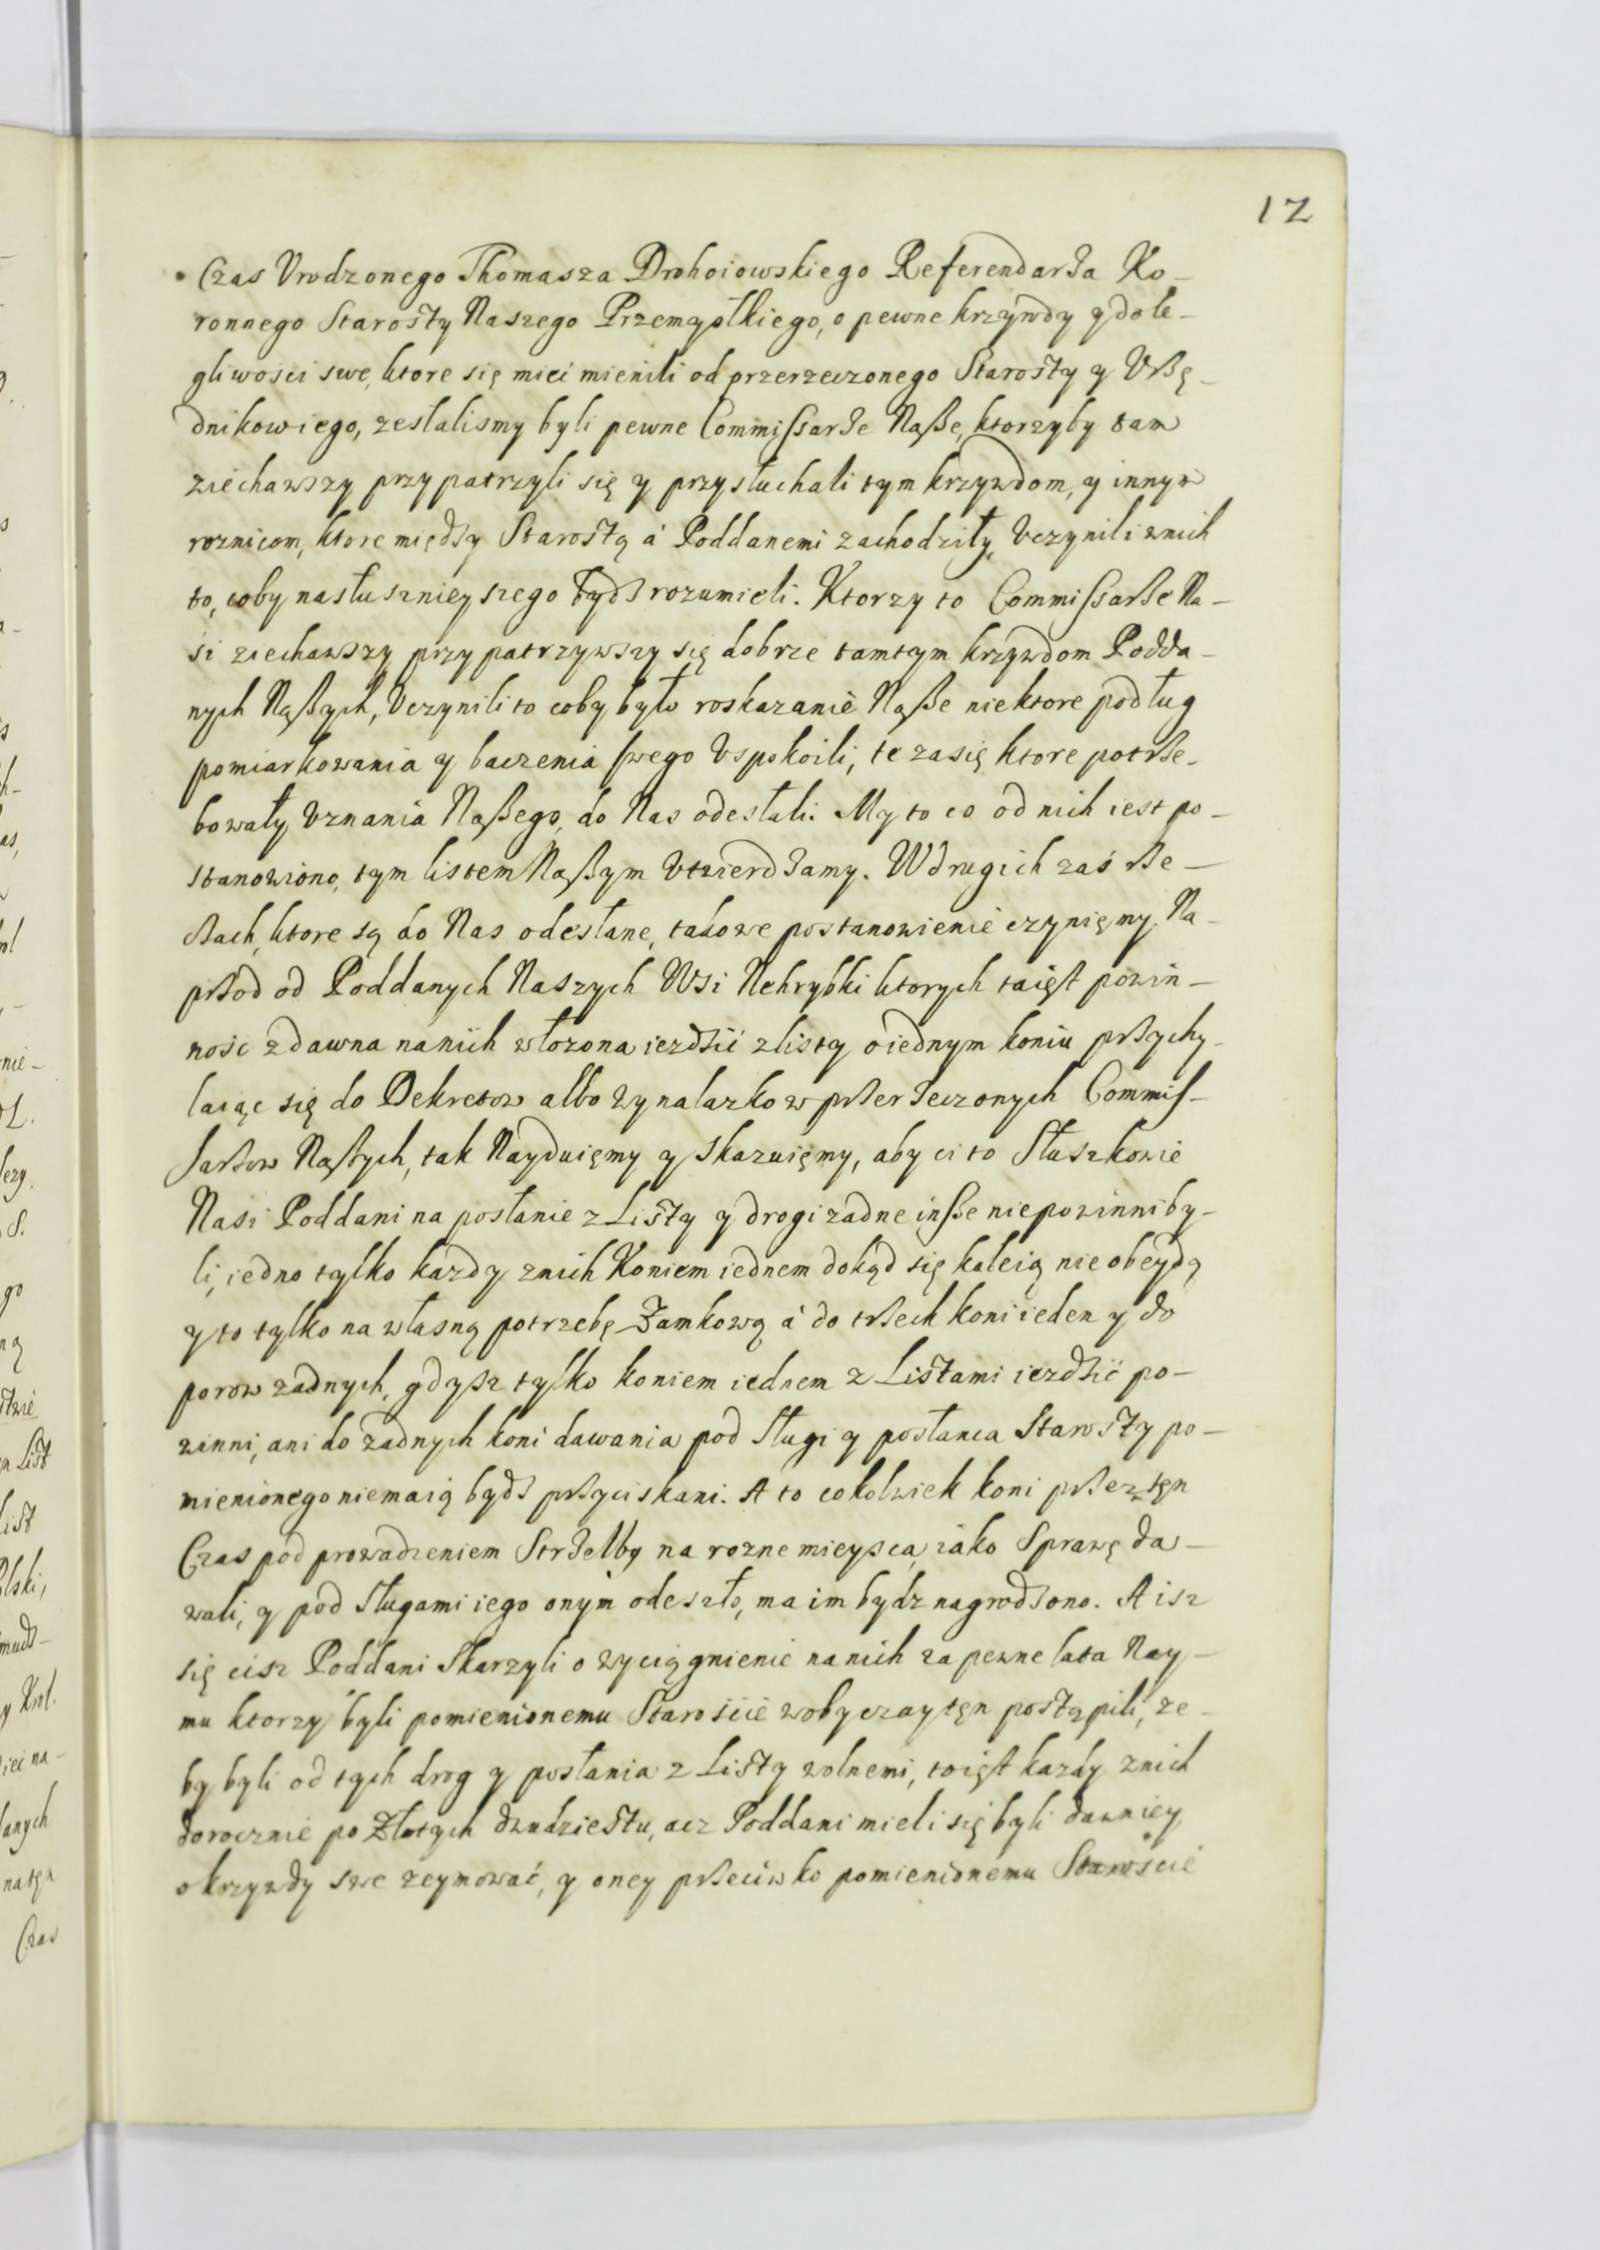 12
Czas Vrodzonego Thomasza Drohoiowskiego Referendarza Ko-
ronnego Starosty Naszego Przemyslkiego, o pewne krzywdy y dole-
gliwosci swe, ktore się mieć mienili od przerzeczonego Starosty y Vrzę-
dnikow iego, zeslalismy byli pewne Commissarze Nasze, ktorzyby tam
ziechawszy przypatrzyli się y przysłuchali tym krzywdom, y innym
roznicom, ktore między Starostą á Poddanemi zachodziły, Vczynili z nich
to, coby nasłusznieyszego bydz rozumieli. Ktorzy to Commissarze Na-
si ziechawszy przypatrzywszy się dobrze tamtym krzywdom Podda-
nych Naszych, Vczynili to coby było roskazanie Nasze niektore podług
pomiarkowania y baczenia swego Vspokoili, te zasię ktore potrze-
bowały Vznania Naszego, do Nas odesłali. My to co od nich iest po-
stanowiono, tym listem Naszym Vtwierdzamy. W drugich zaś rze-
czach, ktore są do Nas odesłane, takowe postanowienie czynięmy. Na-
przod od Poddanych Naszych Wsi Nehrybki ktorych taięst powin-
nośc zdawna na nich włozona iezdzić z listy o iednym koniu przychy-
laiąc się do Dekretow albo wynalazkow przerzeczonych Commis-
sarzow Naszych, tak Nayduięmy y skazuięmy, aby ci to Słuszkowie
Nasi Poddani na posłanie z Listy y drogi zadne insze nie powinni by-
li, iedno tylko kazdy z nich Koniem iednem dokąd się koleią nie obeydą
y to tylko na własną potrzebę Zamkową á do trzech koni ieden y do
porow zadnych, gdysz tylko koniem iednem z Listami iezdzić po-
winni, ani do zadnych koni dawania pod sługi y posłanca Starosty po-
mienionego niemaią bydz przyciskani. A to cokolwiek koni przez tęn
Czas pod prowadzeniem Strzelby na rozne mieysca, iako Sprawę da-
wali, y pod sługami iego onym odeszło, ma im bydz nagrodzono. A isz
się cisz Poddani skarzyli o wyciągnienie na nich za pewne lata Nay-
mu ktorzy byli pomienionemu Starościé w obyczay tęn postąpili, ze-
by byli od tych drog y posłania z Listy wolnemi, toięst kazdy z nich
dorocznie po Złotych dwudziestu, acz Poddani mieli się byli dawniey
o krzywdy swe zeymować, y oney przeciwko pomienionemu Starościé